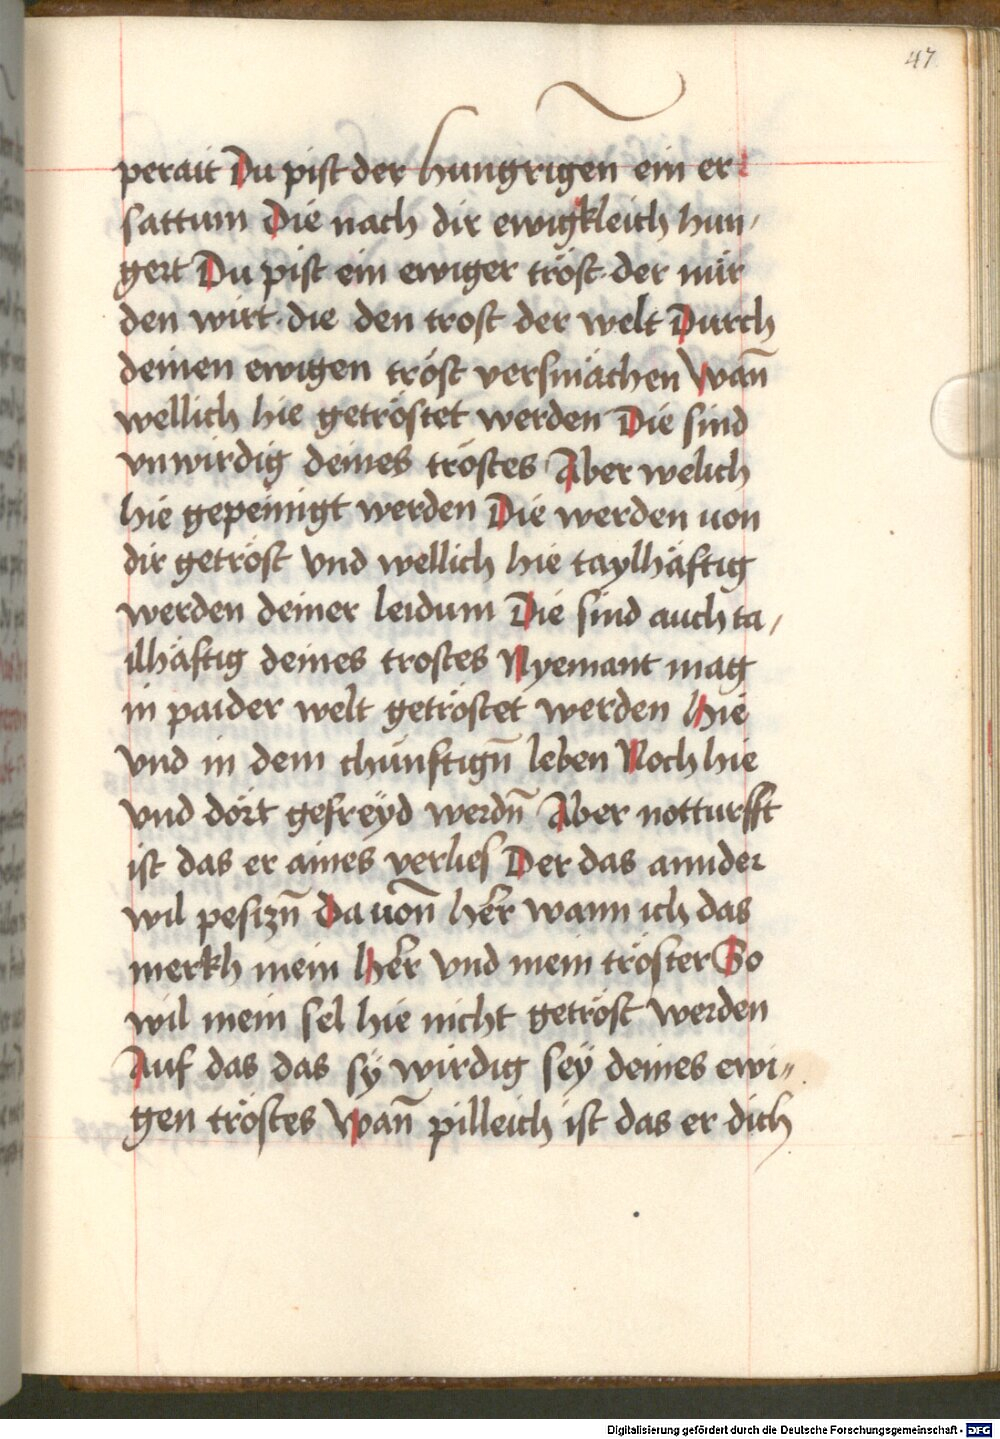 47
perait Du pist der hungrigen ein er
sattum Die nach dir ewigkleich hun,
gert Du pist ein ewiger tröst der mür
den wirt die den trost der welt Durch
deinen ewigen tröst versmächen Wan̄
wellich hie getröstet werden Die sind
vnwirdig deines tröstes Aber welich
hie gepeinigt werden Die werden uon
dir getröst vnd wellich hie taylhäftig
werden deiner leidum Die sind auch ta,
ilhäftig deines trostes Nyemant mag
in paider welt getröstet werden hie
vnd in dem chünftign̄ leben Noch hie
vnd dört gefreÿd werdn̄ Aber notturfft
ist das er aines verlies Der das annder
wil pesizn̄ Da uon̄ her wann ich das
merkh mein her vnd mein tröster So
wil mein sel hie nicht getröst werden
Auf das das sÿ wirdig seÿ deines ewi„
gen tröstes Wan̄ pilleich ist das er dich
Digitalisierung gefördert durch die Deutsche Forschungsgemeinschaft - DFG